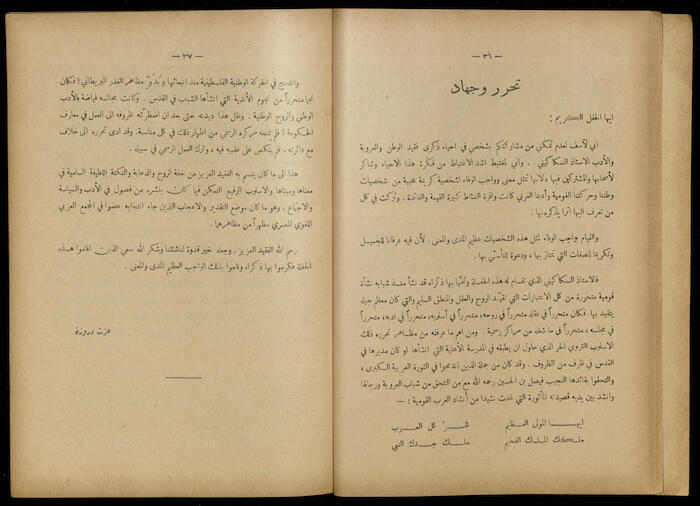 — ٣٦ —
تحرر وجهاد
ايها الحفل الكريم :
اني لآسف لعدم تمكني من مشاركتكم بشخصي في احياء ذكرى فقيد الوطن والعروبة
والأدب الاستاذ السكاكيني . . واني لمغتبط اشد الاغتباط من فكرة هذا الاحياء وشاكر
لأصحابها والمشتركين فيها ، لانها تمثل معنى وواجب الوفاء لشخصية كريمة محببة من شخصيات
وطننا وحركتنا القومية وأدبنا العربي كانت وافرة النشاط كبيرة القيمة والفائدة . وتركت في كل
من تعرف اليها اثرا يذكره بها .
والقيام بواجب الوفاء لمثل هذه الشخصيات عظيم المدى والمعنى . لأن فيه عرفانا للجميل
وتكريما للصفات التي تمتاز بها ، ودعوة للتأسي بها .
فالاستاذ السكاكيني الذي تقام له هذه الحفلة وتحيّا بها ذكراه قد نشأ منذ شبابه نشأة
قومية متحررة من كل الاعتبارات التي تقيّد الروح والعقل والمنطق السليم والتي كان معظم جيله
يتقيد بها . فكان متحرراً في عقله متحرراً في روحه ، متحرراً في أسلوبه ، متحرراً في ادبه ، متحرراً
في مجلسه ، متحرراً في ما شغله من مراكز رسمية . ومن اهم ما عرفته من مظاهر تحرره ذلك
الاسلوب التربوي الحر الذي حاول ان يطبقه في المدرسة الأهلية التي انشأها او كان مديرها في
القدس في ظرف من الظروف . وقد كان من جملة الذين اندمجوا في الثورة العربية الكبرى ،
والتحقوا بقائدها النجيب فيصل بن الحسين رحمه الله مع من التحق من شباب العروبة ورجالها
وانشد بين يديه قصيدته المأثورة التي غدت نشيدا من أنشاد العرب القومية : —
ايهـا المولى العـظيم فخـرُ كل العـرب
ملـكك المـلك الفخيم ملـك جدك النبي
— ٣٧ —
واندمج في الحركة الوطنية الفلسطينية منذ انبعاثها وبدُوّ مظاهر الغدر البريطاني ؛ فكان
نجما متحرراً من نجوم الأندية التي انشأها الشباب في القدس . وكانت مجالسه فياضة بالأدب
الوطني والروح الوطنية . وظل هذا ديدنه حتى بعد ان اضطرّته ظروفه الى العمل في معارف
الحكومة ؛ فلم يمنعه مركزه الرسمي من اظهار ذلك في كل مناسبة . وقد ادى تحرره الى خلاف
مع دائرته . فلم ينكص على عقبيه فيه ، وترك العمل الرسمي في سبيله .
هذا الى ما كان يتسم به الفقيد العزيز من خفة الروح والدعابة والنكتة اللطيفة السامية في
معناها ومبناها والاسلوب الرفيع المتمكن فيما كان ينشره من فصول في الأدب والسياسة
والاجتماع . وهو ما كان موضع التقدير والاعجاب اللذين جاء انتخابه عضوا في المجمع العربي
اللغوي المصري مظهراً من مظاهرهما .
رحم الله الفقيد العزيز . وجعله خير قدوة لناشئتنا وشكر الله سعي الذين اقاموا هذه
الحفلة فكرموا بها ذكراه وقاموا بذلك الواجب العظيم المدى والمعنى .
عزت دروزة